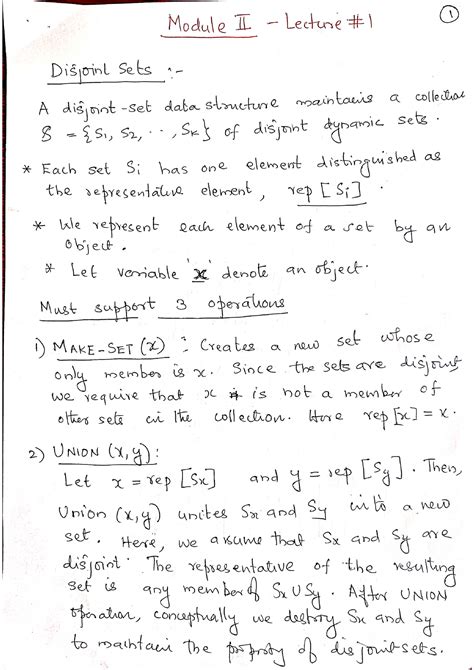 Module II - Lecture #1
1
Disjoint Sets :-
A disjoint-set data structure maintains a collection
S = {S1, S2, .., Sk} of disjoint dynamic sets.
* Each set Si has one element distinguished as
the representative element, rep [Si]
* We represent each element of a set by an
object.
* Let variable 'x' denote an object.
Must support 3 operations
1) MAKE-SET (x) : Creates a new set whose
only member is x. Since the sets are disjoint,
we require that x is not a member of
other sets in the collection. Here rep[x] = x.
2) UNION (x,y):
Let x = rep [Sx] and y = rep [Sy]. Then,
Union (x,y) unites Sx and Sy into a new
set. Here, we assume that Sx and Sy are
disjoint. The representative of the resulting
set is any member of Sx U Sy. After UNION
operation, conceptually we destroy Sx and Sy
to maintain the property of disjoint-sets.